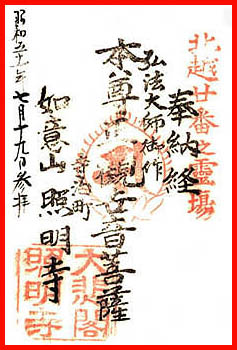 北越廿番之霊場
奉納経
弘法大師御作
本尊正観世音菩薩
寺泊町
如意山照明寺
昭和五十一年七月十九日参拝
大悲閣
照明寺